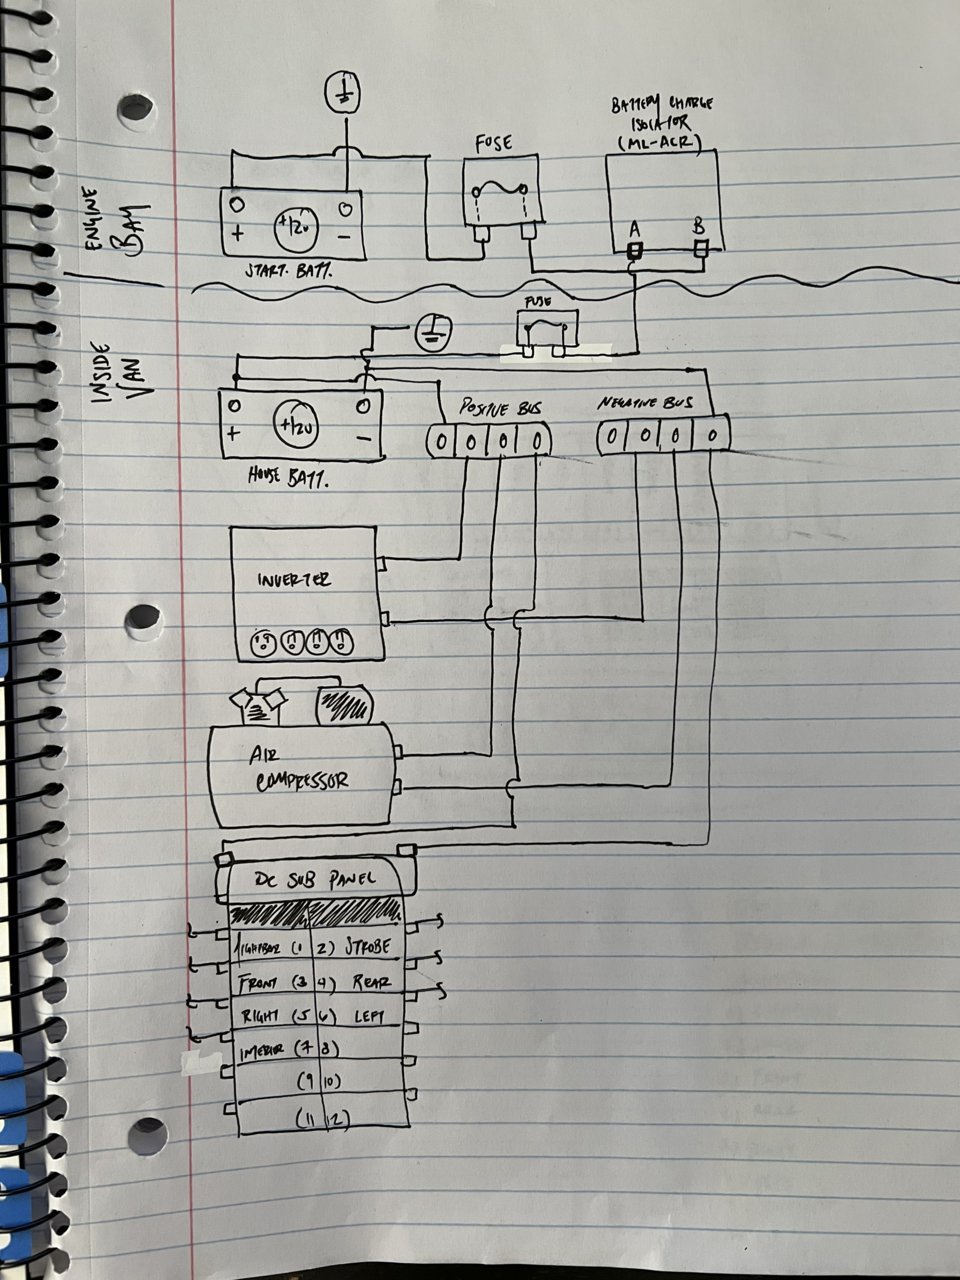 BATTERY CHARGE
ISOLATOR
(ML-ACR)
FUSE
ENGINE
BAY
+12V
A
B
+
-
START. BATT.
FUSE
INSIDE
VAN
POSITIVE BUS
NEGATIVE BUS
+12V
+
-
HOUSE BATT.
INVERTER
AIR
COMPRESSOR
DC SUB PANEL
LIGHTBAR (1 2) STROBE
FRONT (3 4) REAR
RIGHT (5 6) LEFT
INTERIOR (7 8)
(9 10)
(11 12)